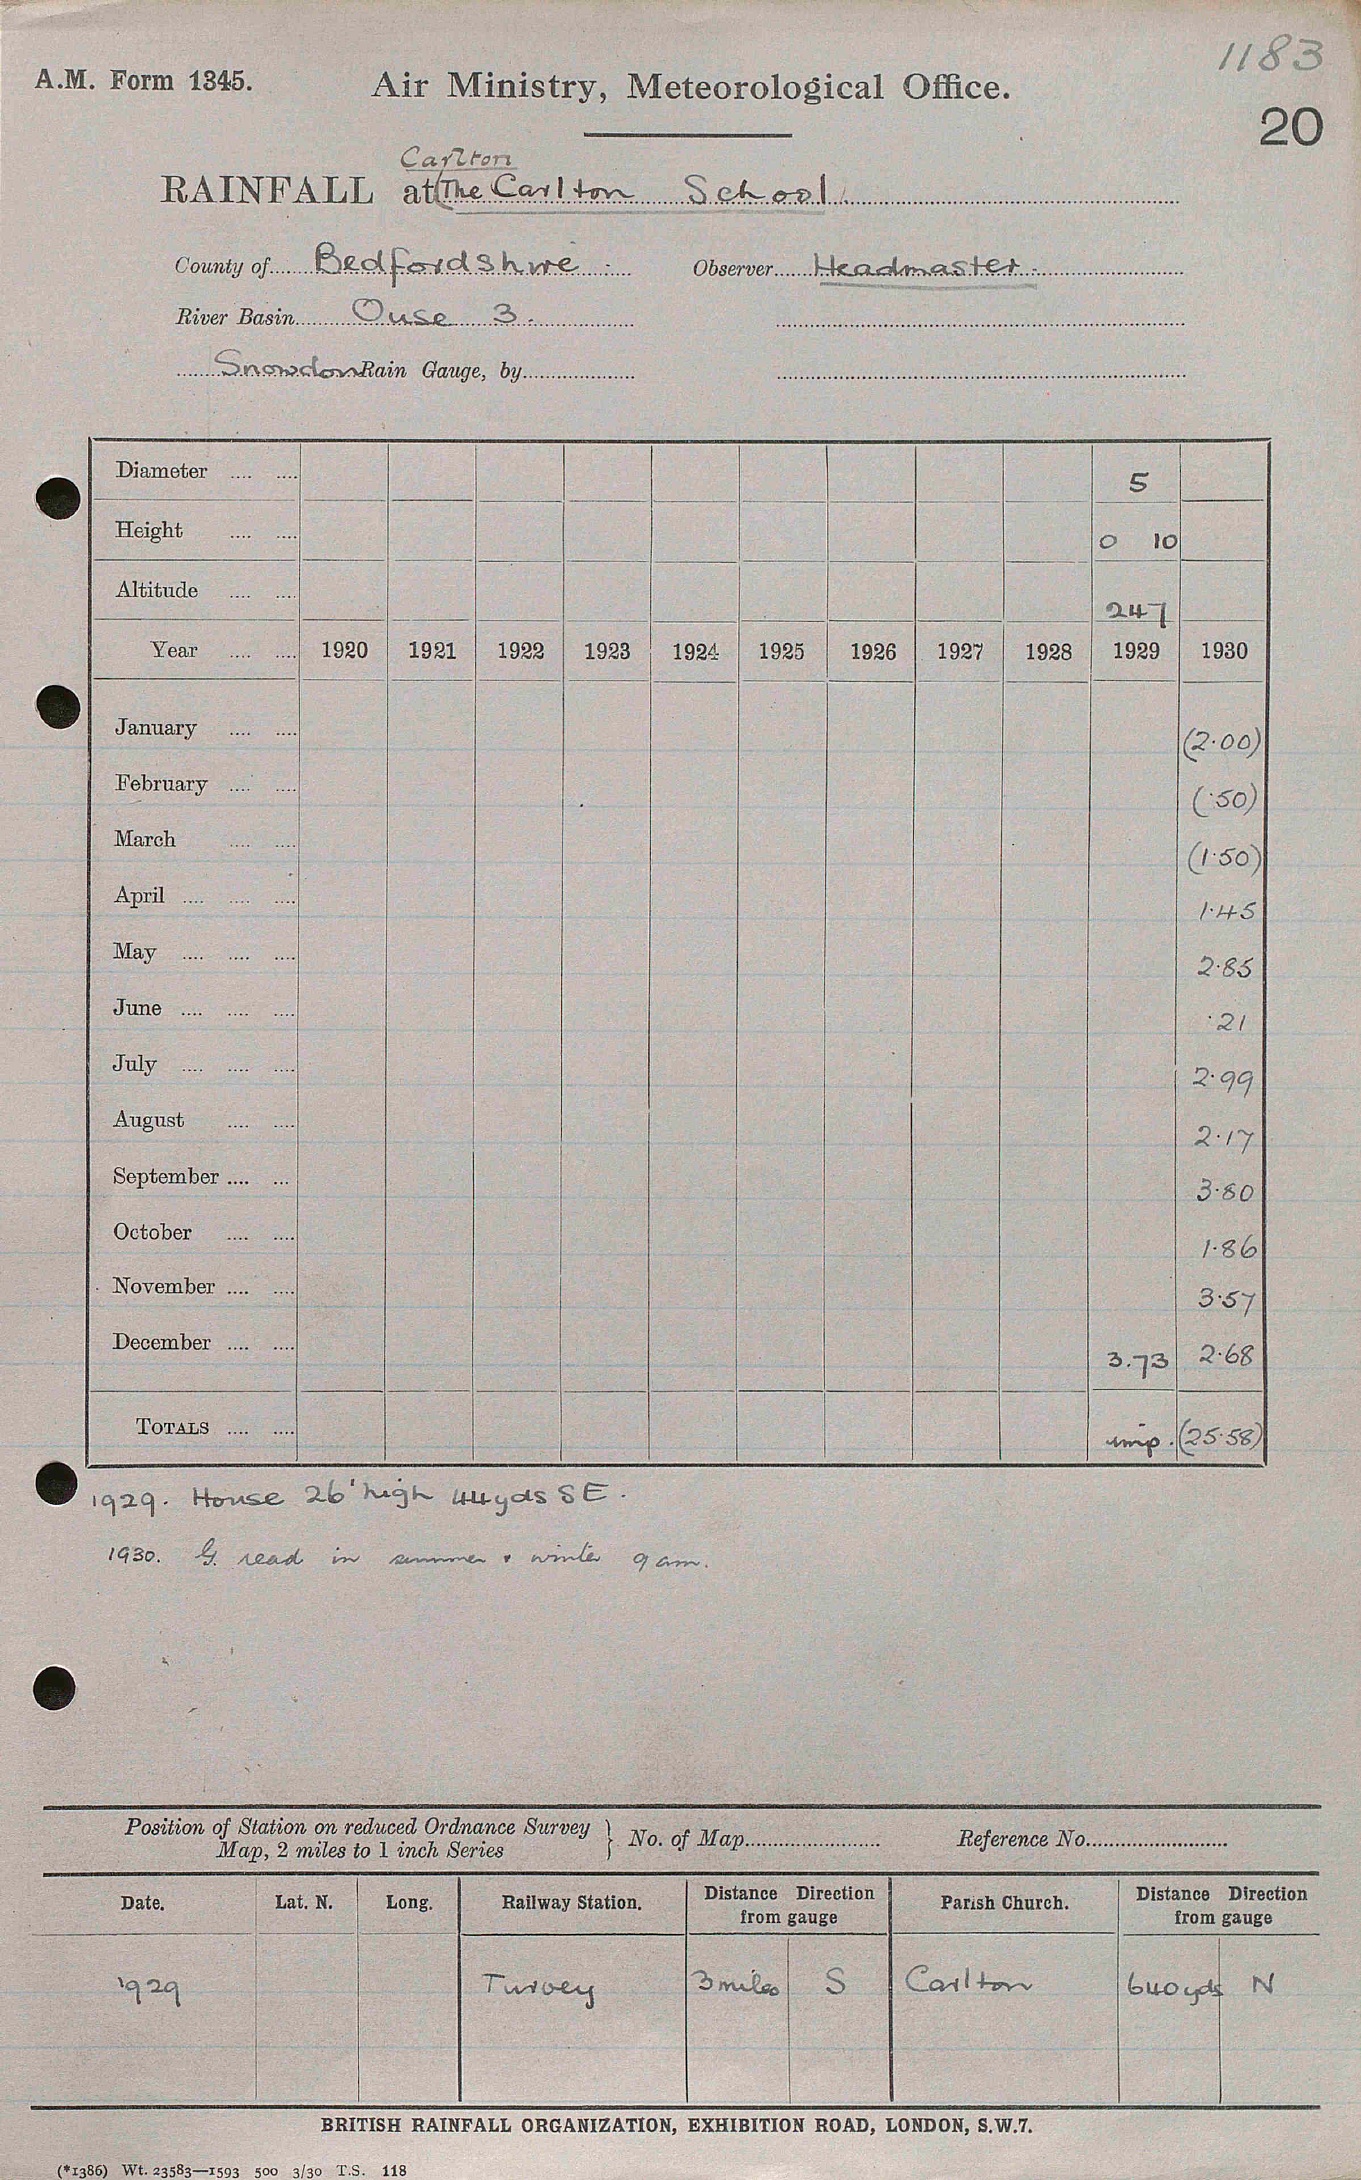 1183
A.M. Form 1345. Air Ministry, Meteorological Office.
20
Carlton
RAINFALL at (The Carlton School.
County of Bedfordshire. Observer Headmaster.
River Basin Ouse 3.
Snowdon Rain Gauge, by
Diameter .... .... 5
Height .... .... 0 10
Altitude .... .... 247
Year .... .... 1920 1921 1922 1923 1924 1925 1926 1927 1928 1929 1930
January .... .... (2·00)
February .... .... (·50)
March .... .... (1·50)
April .... .... .... 1·45
May .... .... .... 2·85
June .... .... .... ·21
July .... .... .... 2·99
August .... .... 2·17
September .... ... 3·80
October .... .... 1·86
November .... .... 3·57
December .... .... 3.73 2·68
TOTALS .... .... imp. (25·58)
1929. House 26' high 44yds SE.
1930. G. read in summer & winter 9 am.
Position of Station on reduced Ordnance Survey
Map, 2 miles to 1 inch Series } No. of Map Reference No.
Date. Lat. N. Long. Railway Station. Distance Direction from gauge Parish Church. Distance Direction from gauge
1929 Turvey 3 miles S Carlton 640 yds N
BRITISH RAINFALL ORGANIZATION, EXHIBITION ROAD, LONDON, S.W.7.
(*1386) Wt. 23583—1593 500 3/30 T.S. 118